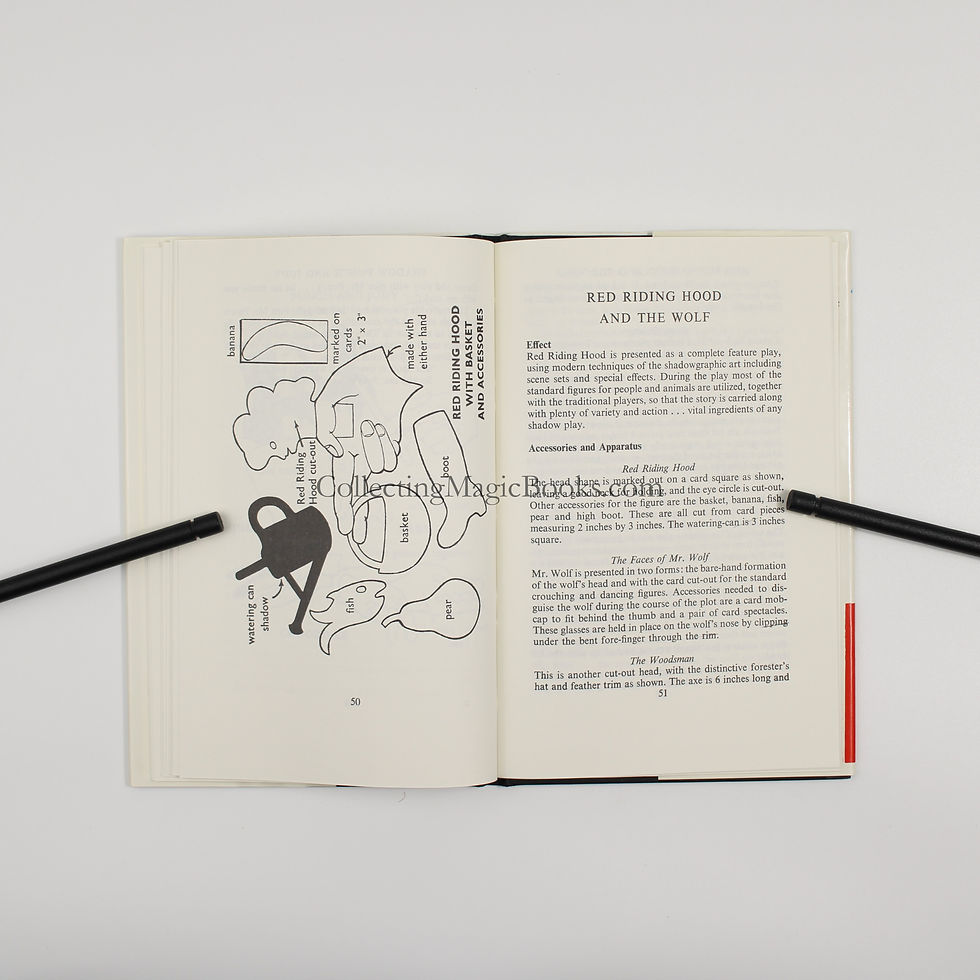 banana
marked on
cards
2" × 3"
made with
either hand
RED RIDING HOOD
WITH BASKET
AND ACCESSORIES
Red Riding
Hood cut-out
boot
basket
watering can
shadow
fish
pear
50
RED RIDING HOOD
AND THE WOLF
Effect
Red Riding Hood is presented as a complete feature play,
using modern techniques of the shadowgraphic art including
scene sets and special effects. During the play most of the
standard figures for people and animals are utilized, together
with the traditional players, so that the story is carried along
with plenty of variety and action . . . vital ingredients of any
shadow play.
Accessories and Apparatus
Red Riding Hood
The head shape is marked out on a card square as shown,
leaving a good neck for holding, and the eye circle is cut-out.
Other accessories for the figure are the basket, banana, fish,
pear and high boot. These are all cut from card pieces
measuring 2 inches by 3 inches. The watering-can is 3 inches
square.
The Faces of Mr. Wolf
Mr. Wolf is presented in two forms: the bare-hand formation
of the wolf's head and with the card cut-out for the standard
crouching and dancing figures. Accessories needed to dis-
guise the wolf during the course of the plot are a card mob-
cap to fit behind the thumb and a pair of card spectacles.
These glasses are held in place on the wolf's nose by clipping
under the bent fore-finger through the rim.
The Woodsman
This is another cut-out head, with the distinctive forester's
hat and feather trim as shown. The axe is 6 inches long and
51
CollectingMagicBooks.com